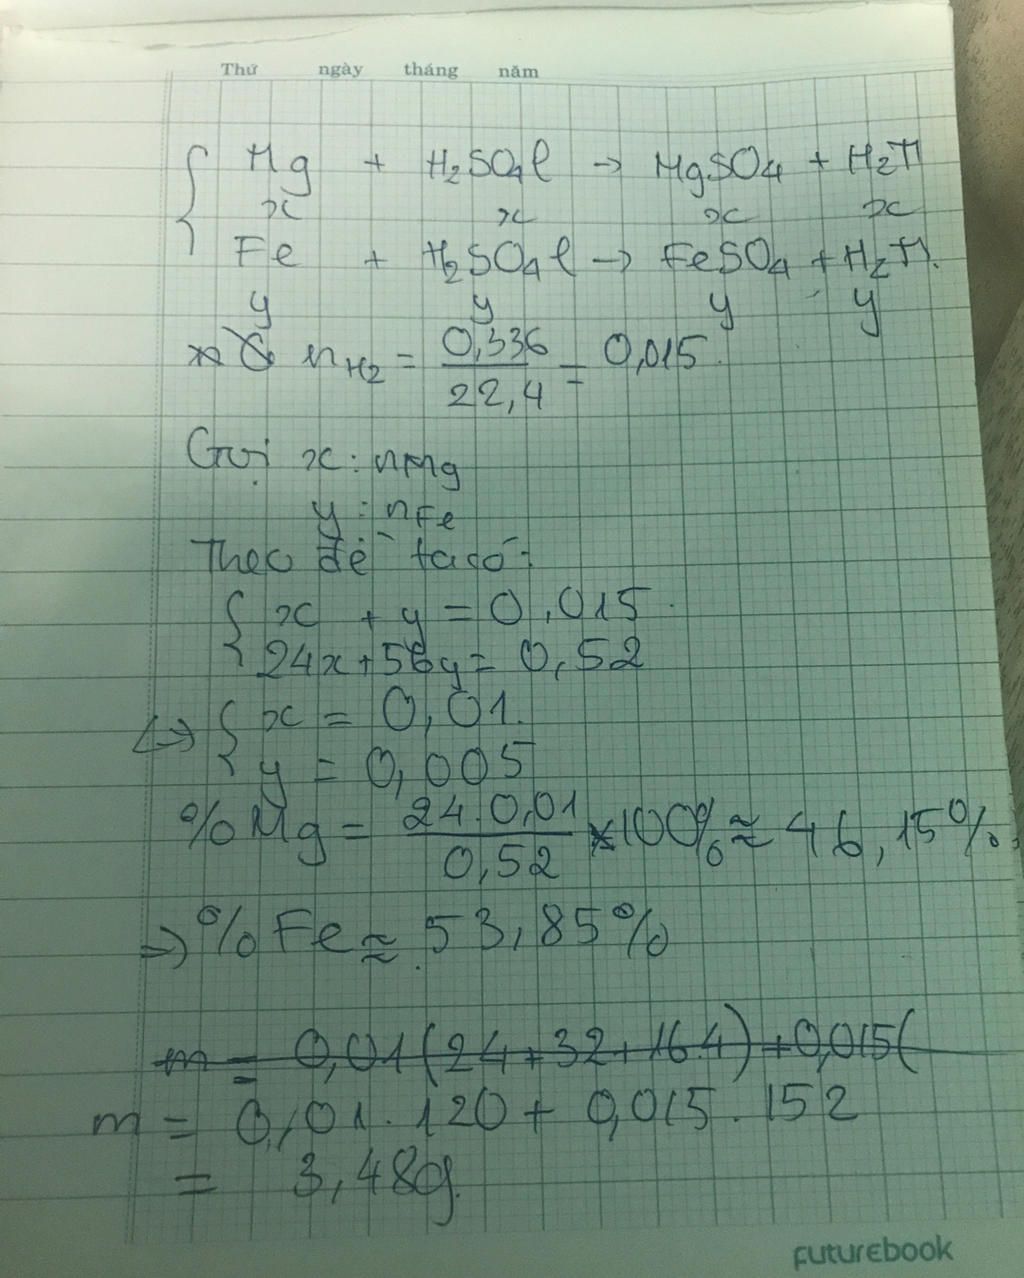 Thứ ngày tháng năm
Mg + H2SO4l → MgSO4 + H2↑
x x x x
Fe + H2SO4l → FeSO4 + H2↑.
y y y y
nH2 = 0,336 / 22,4 = 0,015.
Gọi x : nMg
y : nFe
Theo đề ta có :
{ x + y = 0,015.
24x + 56y = 0,52
<=> { x = 0,01.
y = 0,005
%Mg = 24.0,01 / 0,52 × 100% ≈ 46,15%.
=> %Fe ≈ 53,85%
m = 0,01(24+32+16.4) + 0,015(
m = 0,01.120 + 0,015.152
= 3,48g.
futurebook